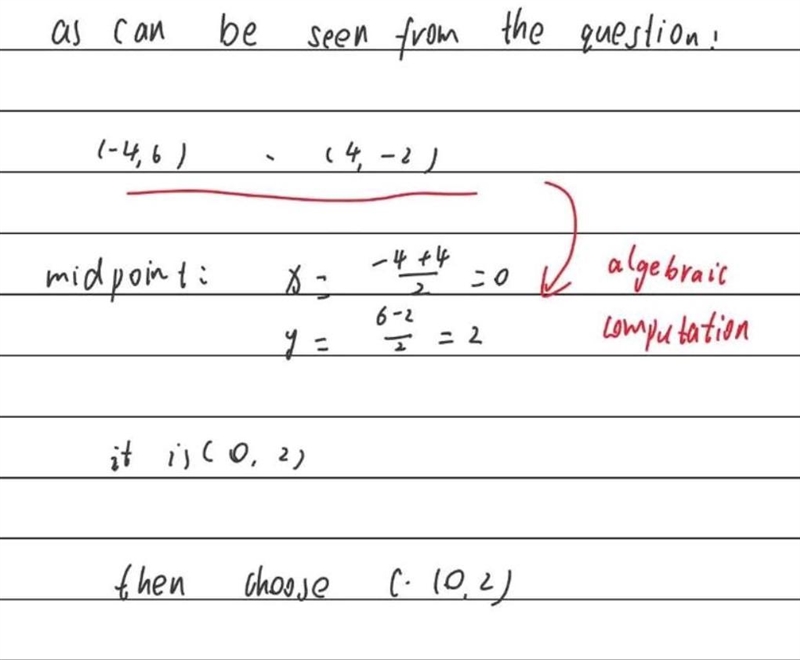 as can be seen from the question:
(-4,6) 、 (4,-2)
midpoint: x = -4+4/2 = 0
algebraic
y = 6-2/2 = 2
computation
it is (0, 2)
then choose C. (0,2)